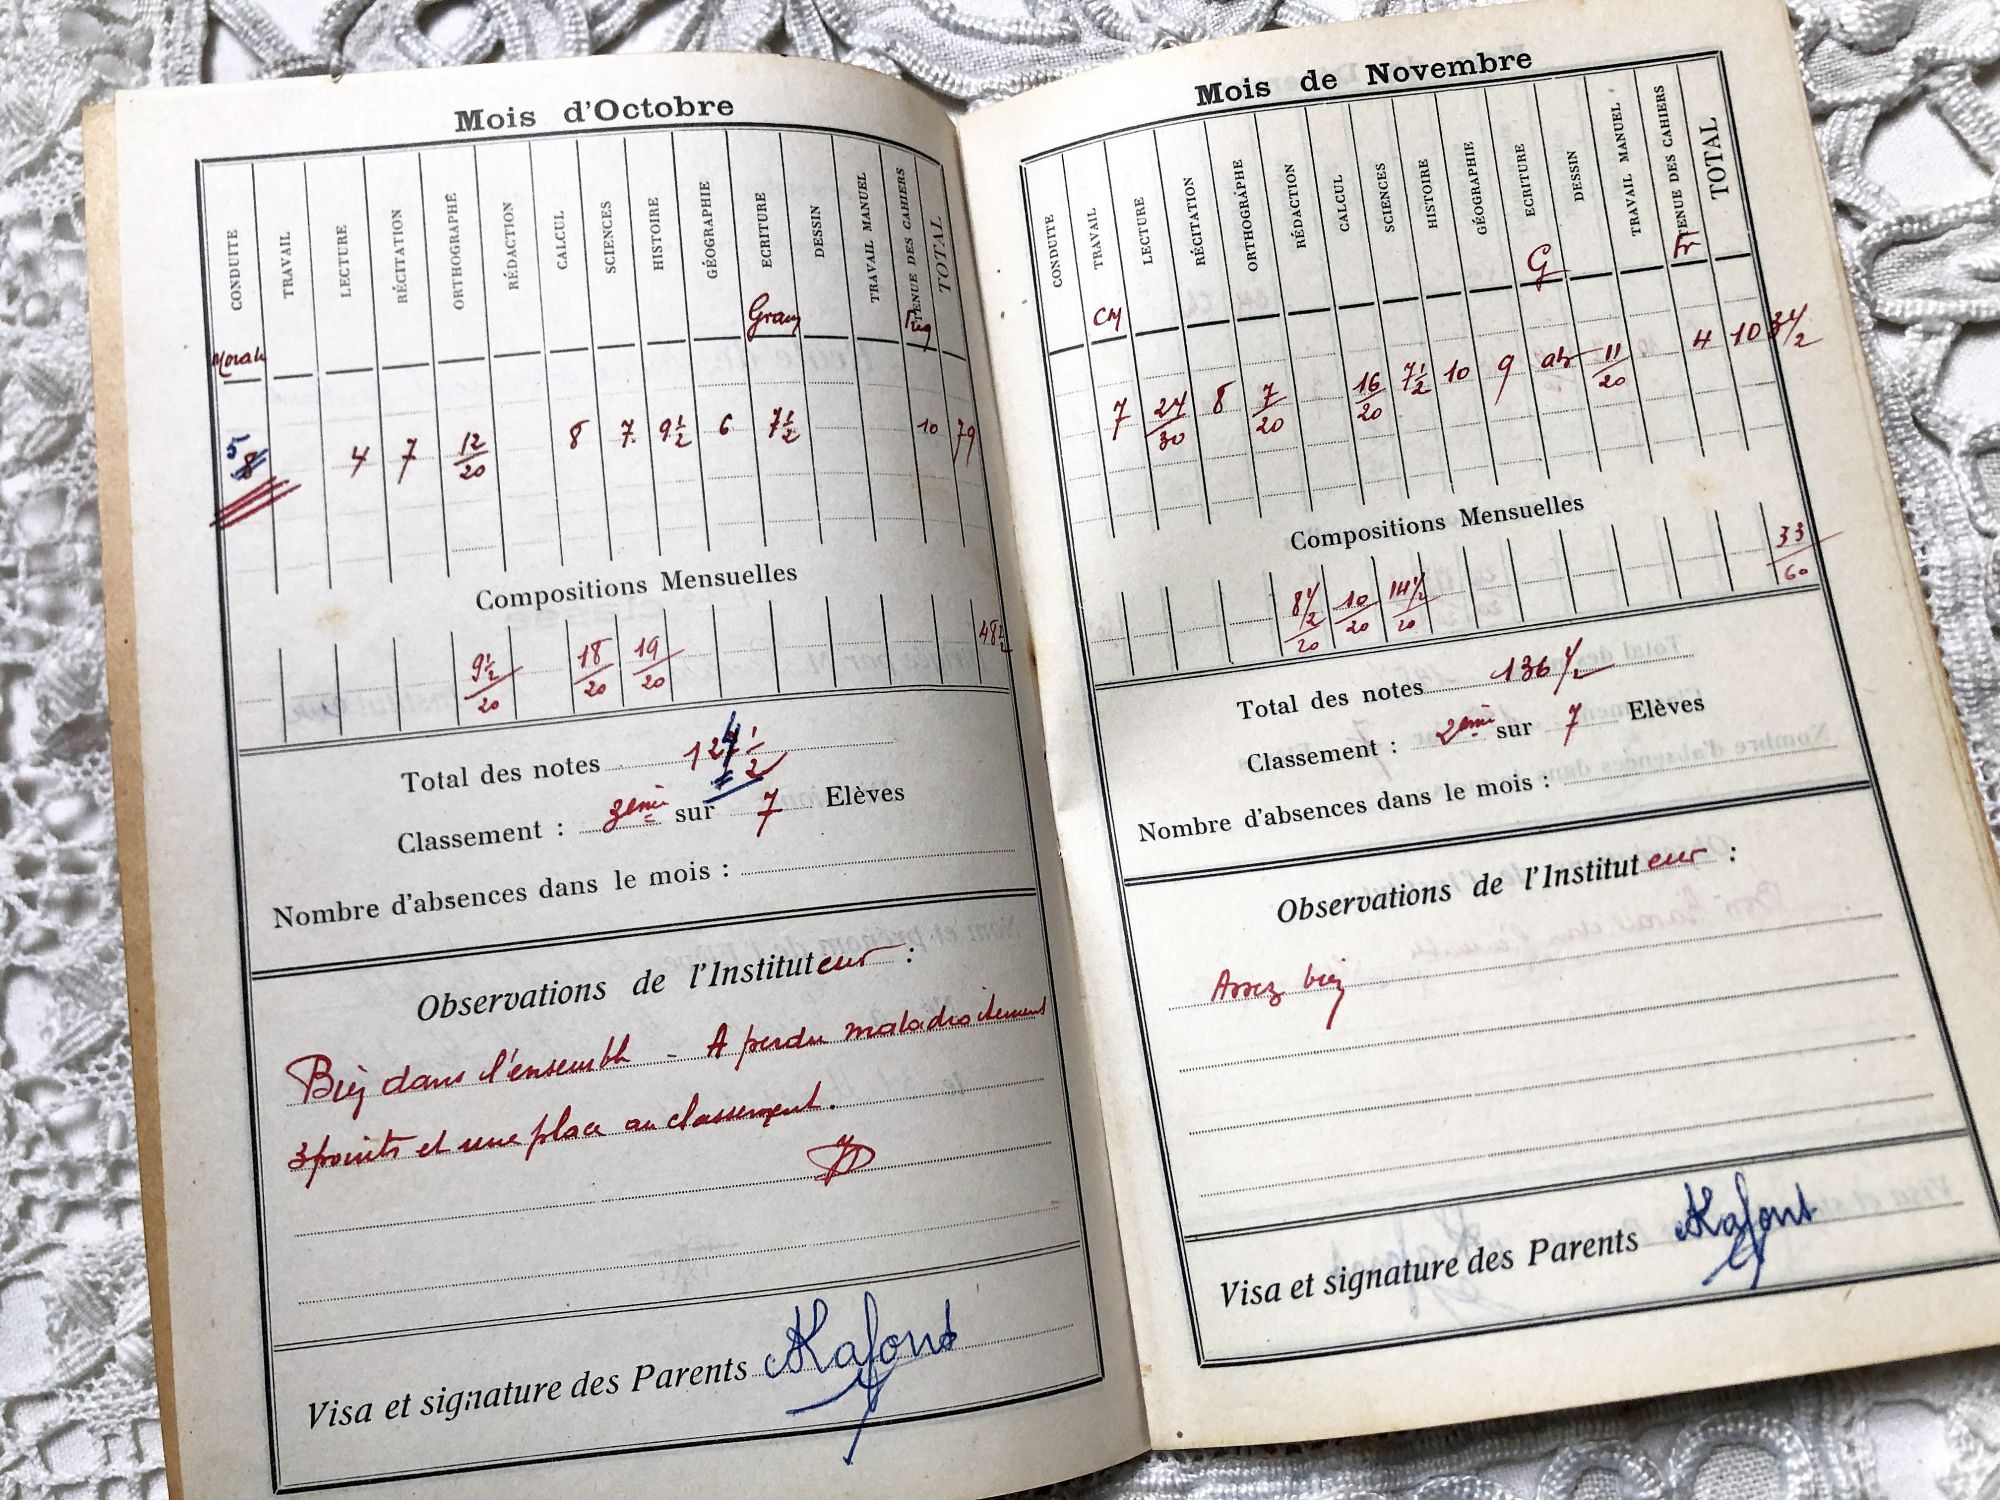 Mois d'Octobre
CONDUITE TRAVAIL LECTURE RÉCITATION ORTHOGRAPHE RÉDACTION CALCUL SCIENCES HISTOIRE GÉOGRAPHIE ECRITURE DESSIN TRAVAIL MANUEL TENUE DES CAHIERS TOTAL
Morale Gram
5 8 4 7 12/20 8 7 9 1/2 6 7 1/2 10 79
Compositions Mensuelles
9 1/2/20 18/20 19/20 48 1/2
Total des notes 124 1/2
Classement : 3eme sur 7 Elèves
Nombre d'absences dans le mois :
Observations de l'Instituteur :
Bien dans l'ensemble - A perdu maladroitement
3 points et une place au classement.
Visa et signature des Parents Kafont
Mois de Novembre
CONDUITE TRAVAIL LECTURE RÉCITATION ORTHOGRAPHE RÉDACTION CALCUL SCIENCES HISTOIRE GÉOGRAPHIE ECRITURE DESSIN TRAVAIL MANUEL TENUE DES CAHIERS TOTAL
CM G Fr
7 24/30 8 7/20 16/20 7 1/2 10 9 ab 11/20 4 10
Compositions Mensuelles
8 1/2/20 10/20 14 1/2/20 33/60
Total des notes 136 1/2
Classement : 2eme sur 7 Elèves
Nombre d'absences dans le mois :
Observations de l'Instituteur :
Assez bien
Visa et signature des Parents Kafont